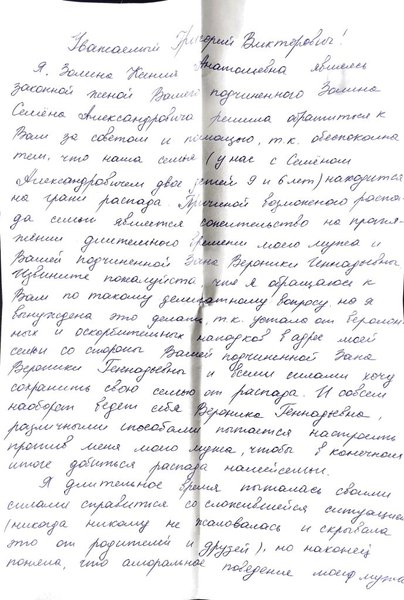 Уважаемый Григорий Викторович!
Я, Залина Ксения Анатольевна являюсь
законной женой Вашего подчиненного Залина
Семёна Александровича решила обратиться к
Вам за советом и помощью, т.к. обеспокоена
тем, что наша семья (у нас с Семёном
Александровичем двое детей 9 и 6 лет) находится
на грани распада. Причиной возможного распа-
да семьи является сожительство на протя-
жении длительного времени моего мужа и
Вашей подчиненной Зана Вероники Геннадьевны.
Извините пожалуйста, что я обращаюсь к
Вам по такому деликатному вопросу, но я
вынуждена это делать, т.к. устала от вероном-
ных и оскорбительных нападков в адрес моей
семьи со стороны Вашей подчиненной Зана
Вероники Геннадьевны и всеми силами хочу
сохранить свою семью от распада. И совсем
наоборот ведет себя Вероника Геннадьевна,
различными способами пытается настроить
против меня моего мужа, чтобы в конечном
итоге добиться распада нашей семьи.
Я длительное время пыталась своими
силами справиться со сложившейся ситуацией
(никогда никому не жаловалась и скрывала
это от родителей и друзей), но наконец
поняла, что аморальное поведение моего мужа